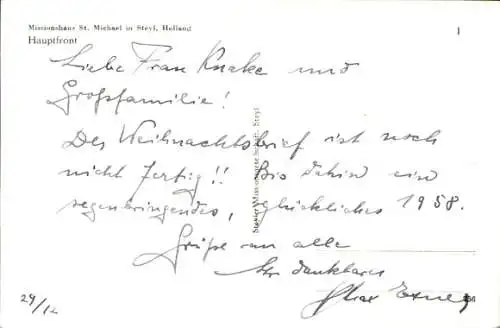 Missionshaus St. Michael in Steyl, Holland
1
Hauptfront
Liebe Frau Knake und
Großfamilie!
Der Weihnachtsbrief ist noch
nicht fertig!! Bis dahin ein
segenbringendes, glückliches 1958.
Grüße an alle
Ihr dankbarer
29/12